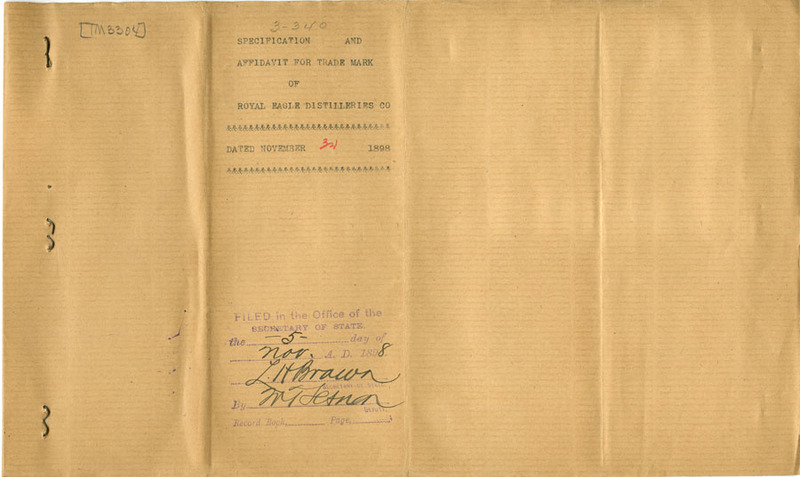 [TM3304]
3-340
SPECIFICATION AND
AFFIDAVIT FOR TRADE MARK
OF
ROYAL EAGLE DISTILLERIES CO
DATED NOVEMBER 1898
FILED in the Office of the
SECRETARY OF STATE.
the -5- day of
Nov. A. D. 1898
L H Brown
Secretary of State.
By
Record Book, Page,